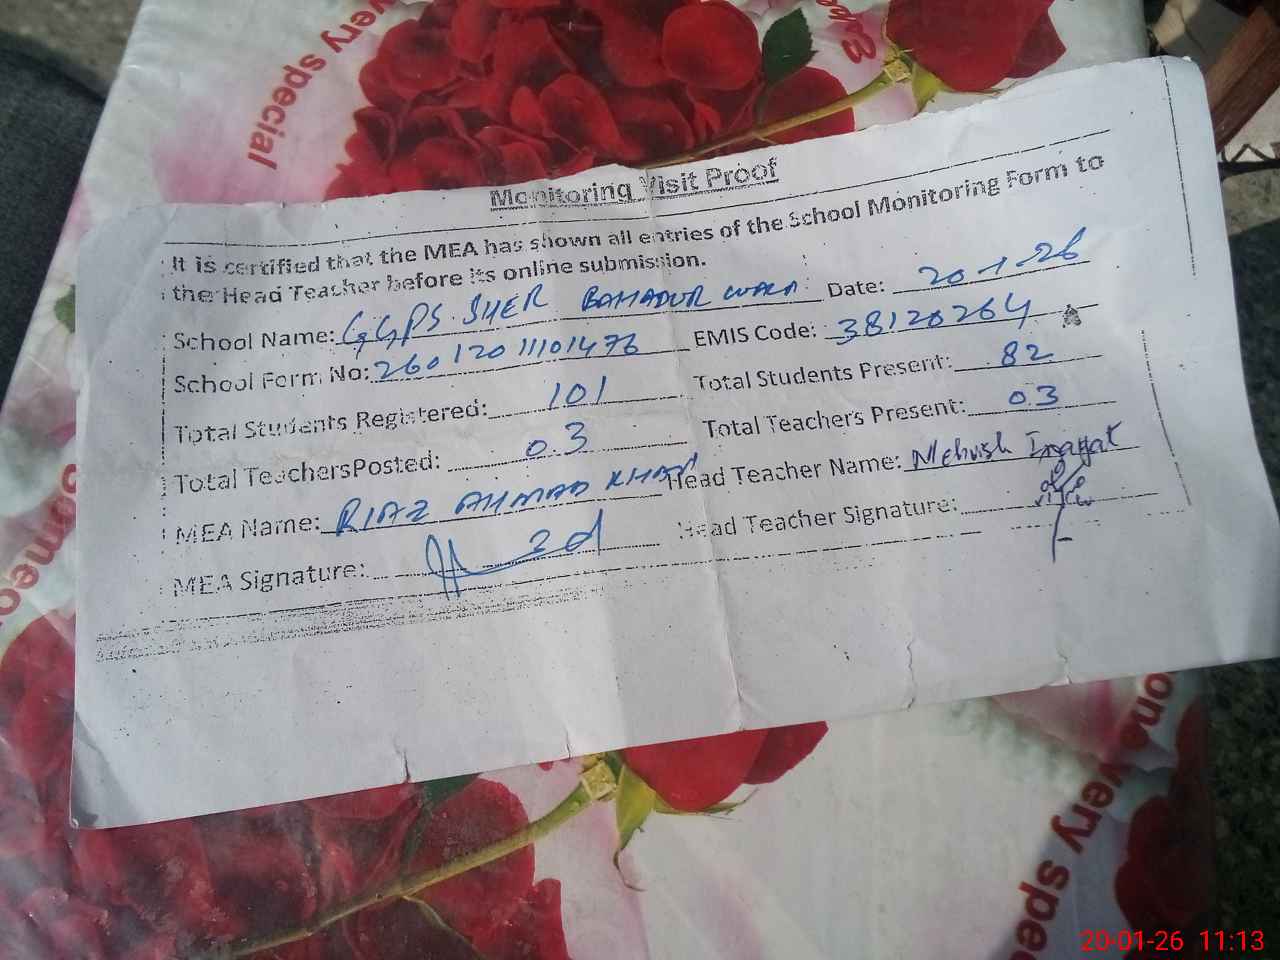 very special
Monitoring Visit Proof
It is certified that the MEA has shown all entries of the School Monitoring Form to
the Head Teacher before its online submission.
School Name: GGPS SHER BAHADUR WALA Date: 20-1-26
School Form No: 26012011101476 EMIS Code: 38120264
Total Students Registered: 101 Total Students Present: 82
Total TeachersPosted: 03 Total Teachers Present: 03
MEA Name: RIAZ AHMAD KHAN Head Teacher Name: Mehvish Inayat
MEA Signature: Head Teacher Signature:
very
20-01-26 11:13